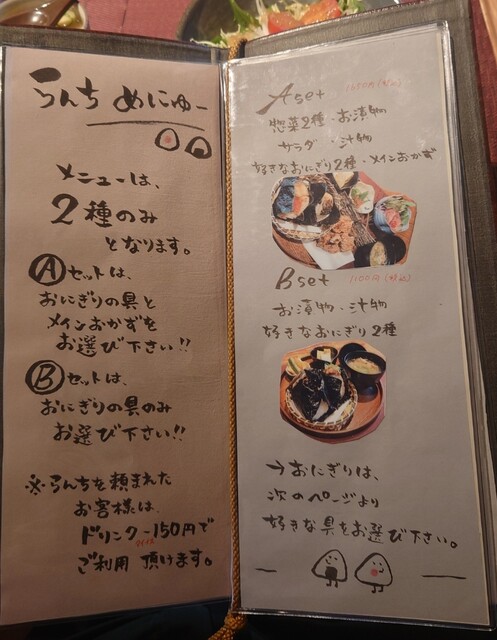 らんち めにゅー
メニューは、
2種のみ
となります。
Ⓐセットは、
おにぎりの具と
メインおかずを
お選び下さい!!
Ⓑセットは、
おにぎりの具のみ
お選び下さい!!
※らんちを頼まれた
お客様は、
ドリンクー150円で
ご利用 頂けます。
Aset
惣菜2種・お漬物
サラダ ・汁物
好きなおにぎり2種・メインおかず
Bset 1100円(税込)
お漬物・汁物
好きなおにぎり2種
→おにぎりは、
次のページより
好きな具をお選び下さい。